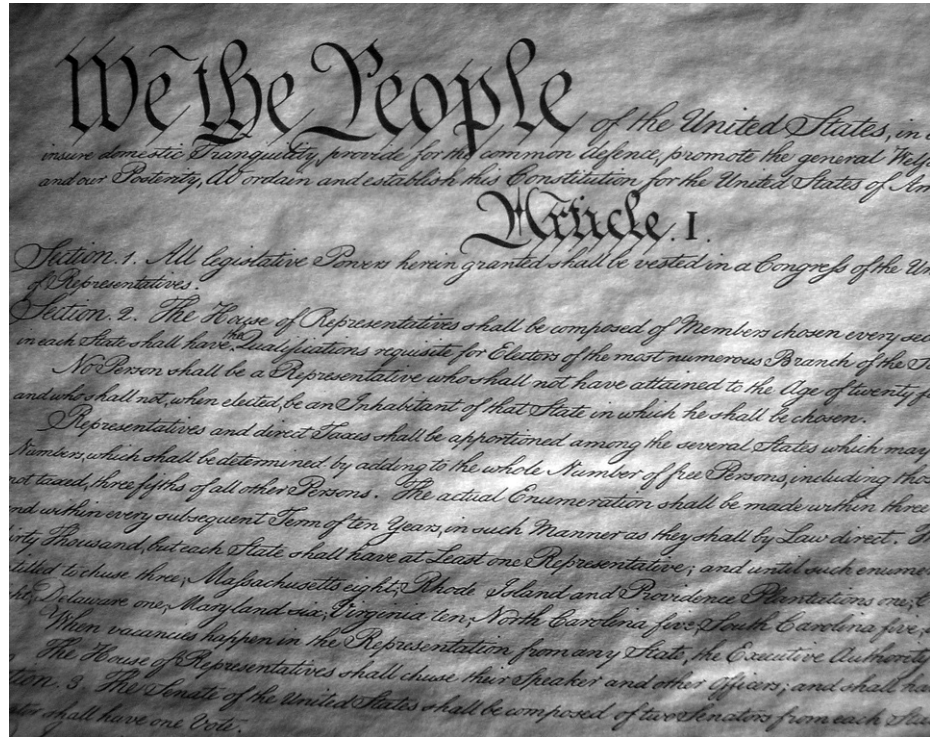 We the People of the United States, in
insure domestic Tranquility, provide for the common defence, promote the general Welf
and our Posterity, do ordain and establish this Constitution for the United States of Am
Article. I.
Section. 1. All legislative Powers herein granted shall be vested in a Congress of the Un
of Representatives.
Section. 2. The House of Representatives shall be composed of Members chosen every sec
in each State shall have the Qualifications requisite for Electors of the most numerous Branch of the
No Person shall be a Representative who shall not have attained to the Age of twenty f
and who shall not, when elected, be an Inhabitant of that State in which he shall be chosen.
Representatives and direct Taxes shall be apportioned among the several States which may
Numbers, which shall be determined by adding to the whole Number of free Persons, including thos
not taxed, three fifths of all other Persons. The actual Enumeration shall be made within three
nd within every subsequent Term of ten Years, in such Manner as they shall by Law direct.
irty Thousand, but each State shall have at Least one Representative; and until such enume
titled to chuse three, Massachusetts eight, Rhode Island and Providence Plantations one,
ht, Delaware one, Maryland six, Virginia ten, North Carolina five, South Carolina five,
When vacancies happen in the Representation from any State, the Executive Authority
The House of Representatives shall chuse their Speaker and other Officers; and shall ha
tion. 3. The Senate of the United States shall be composed of two Senators from each Sta
ator shall have one Vote.